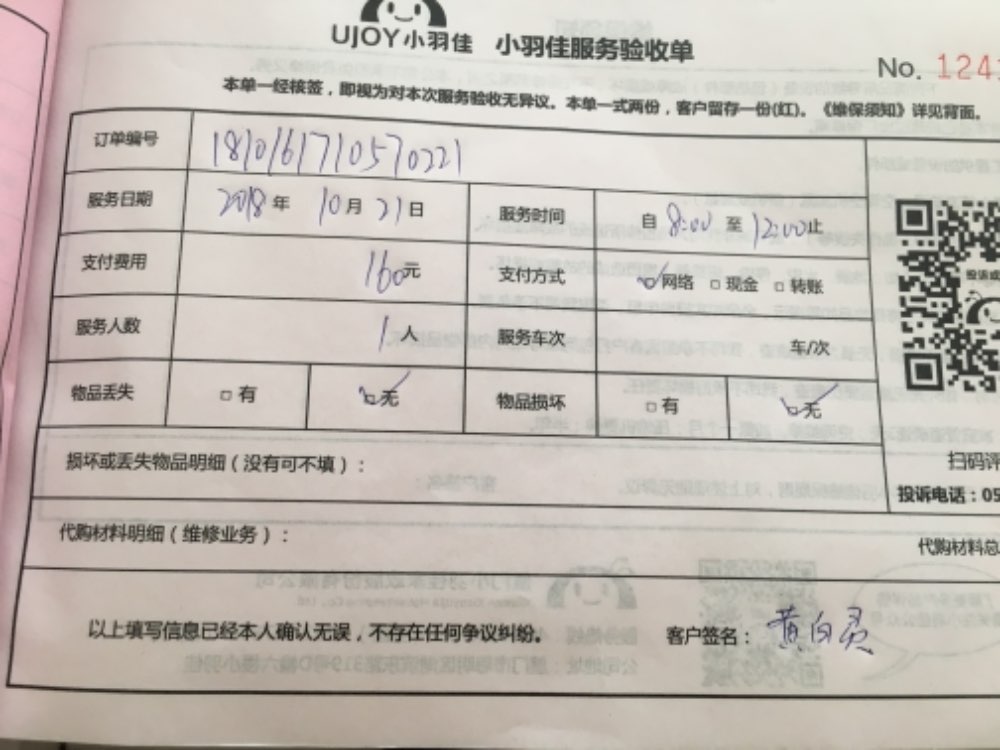 UJOY小羽佳 小羽佳服务验收单
No. 1241
本单一经核签，即视为对本次服务验收无异议。本单一式两份，客户留存一份(红)。《维保须知》详见背面。
订单编号 1810161710570221
服务日期 2018年 10月 21日 服务时间 自 8:00 至 12:00止
支付费用 160元 支付方式 □网络 □现金 □转账
服务人数 1人 服务车次 车/次
物品丢失 □有 □无 物品损坏 □有 □无
损坏或丢失物品明细（没有可不填）：
扫码评
投诉电话：05
代购材料明细（维修业务）：
代购材料总
以上填写信息已经本人确认无误，不存在任何争议纠纷。 客户签名：黄白灵